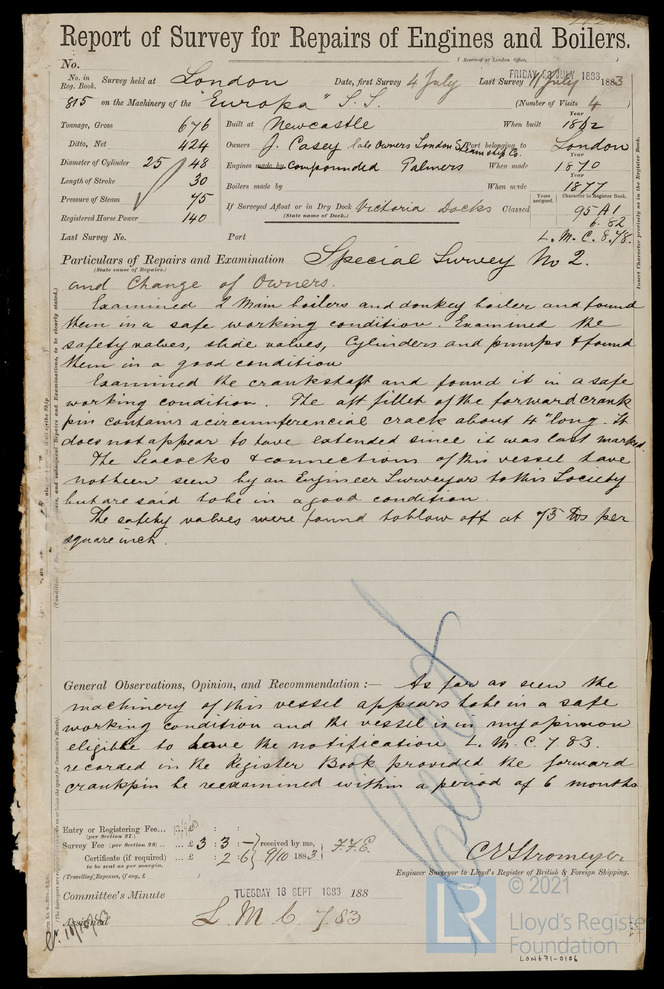 Report of Survey for Repairs of Engines and Boilers.
No.
(Received at London Office,
No. in Reg. Book. Survey held at London Date, first Survey 4 July Last Survey 11 July 1883
FRIDAY JULY 1883
815 on the Machinery of the "Europa" S.S. (Number of Visits 4)
Tonnage, Gross 676 Built at Newcastle When built Year 1862
Ditto, Net 424 Owners J. Casey late Owners London Steamship Co. Port belonging to London
Diameter of Cylinder 25 / 48 Engines made by Compounded Palmers When made Year 1870
Length of Stroke 30 Boilers made by When made Year 1877
Pressure of Steam 75 If Surveyed Afloat or in Dry Dock Victoria Docks Classed Years assigned. Character in Register Book.
(State name of Dock.) 95 A1
Registered Horse Power 140 6.82
Last Survey No. Port L.M.C. 8.78.
Particulars of Repairs and Examination Special Survey No 2.
(State cause of Repairs.)
and Change of Owners.
Examined 2 Main boilers and donkey boiler and found
them in a safe working condition. Examined the
safety valves, slide valves, Cylinders and pumps & found
them in a good condition
Examined the crankshaft and found it in a safe
working condition. The aft fillet of the forward crank
pin contains a circumferencial crack about 4" long. It
does not appear to have extended since it was last marked
The Seacocks & connections of this vessel have
not been seen by an Engineer Surveyor to this Society
but are said to be in a good condition.
The safety valves were found to blow off at 75 lbs per
square inch.
General Observations, Opinion, and Recommendation :— As far as seen the
machinery of this vessel appears to be in a safe
working condition and the vessel is in my opinion
eligible to have the notification L.M.C. 7 83.
recorded in the Register Book provided the forward
crankpin be reexamined within a period of 6 months
Entry or Registering Fee... £ : :
(per Section 27.)
Survey Fee (per Section 28) ... £ 3 : 3 : — received by me,
Certificate (if required) ... : 2 : 6 9/10 1883 F.F.E.
to be sent as per margin.
(Travelling Expenses, if any, £ )
C E Stromeyer
Engineer Surveyor to Lloyd's Register of British & Foreign Shipping.
Committee's Minute TUESDAY 18 SEPT 1883 188
Assigned L.M.C. 7.83
Insert Character precisely as in the Register Book.
© 2021
LR
Lloyd's Register
Foundation
LON671-0106